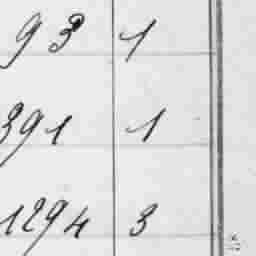 93 1
391 1
1294 3